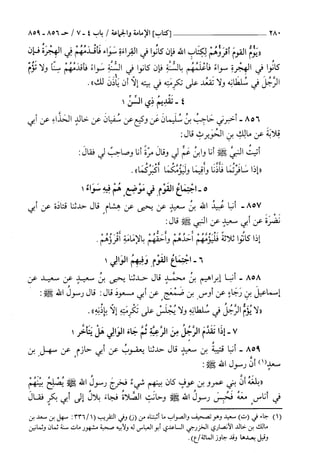 ٢٨٠ [كتاب] الإمامة والجماعة/ باب ٤ - ٧ / حـ ٨٥٦ - ٨٥٩
«يَؤُمُّ القومَ أقْرَؤُهُمْ لِكتابِ الله فإن كَانُوا في القِرَاءَةِ سَوَاءً فأقْدَمُهُمْ في الهِجْرَةِ فَإن
كانُوا في الهجْرَةِ سواءً فأعْلَمُهُم بِالسُّنَّةِ فإن كانوا في السُّنَّةِ سَوَاءً فأقدمُهُمْ سِنًّا ولا تَؤُمَّ
الرَّجُلَ في سُلطَانِه ولا تَقعُد على تَكرِمَتِهِ في بيتِه إلاَّ أن يَأْذَنَ لك».
٤ - تَقْدِيمُ ذَوِي السِّنِّ ١
٨٥٦ - أخبرني حَاجِبُ بنُ سُلَيمَانَ عَن وكيعٍ عن سُفيَانَ عَن خالدٍ الحَذَّاءِ عن أبي
قِلاَبَةَ عن مَالِكِ بنِ الحُوَيرثِ قال:
أتيتُ النبيَّ ﷺ أنا وابنُ عَمٍّ لي وقالَ مَرَّةً أنا وصاحبٌ لي فقالَ:
«إذا سَافَرْتُمَا فَأَذِّنَا وأقِيمَا ولْيَؤُمَّكُمَا أَكْبَرُكُمَا».
٥ - اجْتِمَاعُ القَوْمِ في مَوْضِعٍ هُمْ فِيهِ سَوَاءٌ ١
٨٥٧ - أنبا عُبيدُ الله بنُ سعيدٍ عن يحيى عن هِشامٍ قال حدثنا قتادَةُ عن أبي
نَضْرَةَ عن أبي سعيدٍ عن النبي ﷺ قال:
إذا كانُوا ثَلاثَةً فَلْيَؤُمَّهُمْ أحَدُهُمْ وأَحَقُّهُمْ بالإمَامَةِ أقْرَؤُهُمْ.
٦ - اجْتِمَاعُ القَوْمِ وَفِيهِمُ الوَالِي ١
٨٥٨ - أنبا إبراهيم بنُ محمَّدٍ قال حدثنا يحيى بنُ سعيدٍ عن شعبةَ عن
إسماعيلَ بنِ رَجَاءٍ عن أوسِ بن ضَمْعَجٍ عن أبي مسعودٍ قال: قال رسولُ الله ﷺ:
«لا يُؤَمُّ الرَّجُلُ في سُلطَانِه ولا يُجْلَسُ على تَكْرِمَتِهِ إلاَّ بإِذْنِهِ».
٧ - إذَا تَقَدَّمَ الرَّجُلُ مِنَ الرَّعِيَّةِ ثُمَّ جَاءَ الوَالِي هَلْ يَتَأَخَّرُ ١
٨٥٩ - أنبا قتيبةُ بنُ سعيدٍ قال حدثنا يعقوبُ عن أبي حازمٍ عن سهلِ بن
سعدٍ(١) أنَّ رسولَ الله ﷺ:
«بلَغَهُ أنَّ بَني عمرو بنِ عوفٍ كان بينهم شَيءٌ فخرجَ رسولُ الله ﷺ لِيُصْلِحَ بَيْنَهُمْ
في أناسٍ معَهُ فَحُبِسَ رسولُ الله ﷺ وحانَتِ الصَّلاةُ فجاءَ بلالٌ إلى أبي بكرٍ فقالَ
(١) جاء في (ت) سعيد وهو تصحيف والصواب ما أثبتناه من (ز) وفي التقريب (٣٣٦/١): سهل بن سعد بن
مالك بن خالد الأنصاري الخزرجي الساعدي أبو العباس له ولأبيه صحبة مشهور مات سنة ثمان وثمانين
وقيل بعدها وقد جاوز المائة/ع).